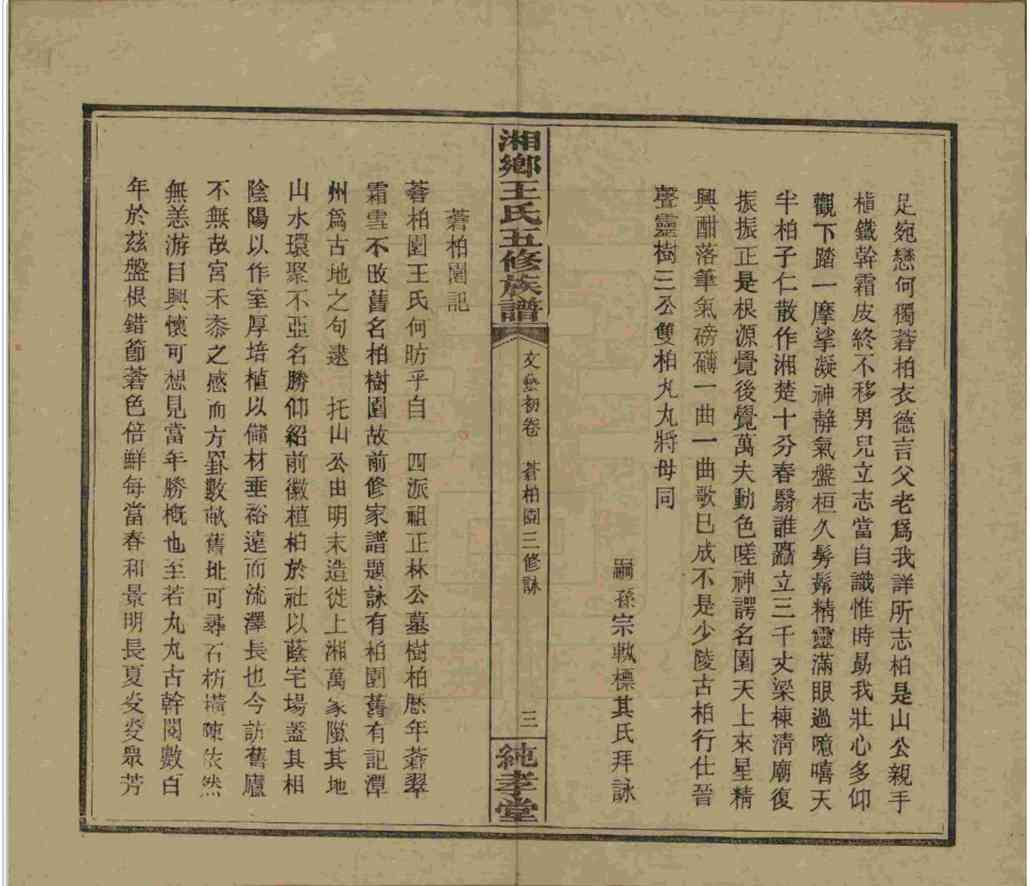 足宛戀何獨蒼柏衣德言父老爲我詳所志柏是山公親手
植鐵幹霜皮終不移男兒立志當自識惟時勗我壯心多仰
觀下踏一摩挲凝神靜氣盤桓久髣髴精靈滿眼過噫嘻天
半柏子仁散作湘楚十分春翳誰矗立三千丈梁棟淸廟復
振振正是根源覺後覺萬夫動色嗟神諤名園天上來星精
興酣落筆氣磅礴一曲一曲歌已成不是少陵古柏行仕晉
聲靈樹三公雙柏丸丸將母同
嗣孫宗軾標其氏拜詠
湘鄉王氏五修族譜
文藝初卷 蒼柏園三修詠
三
純孝堂
蒼柏園記
蒼柏園王氏何昉乎自 四派祖正林公墓樹柏歷年蒼翠
霜雪不改舊名柏樹園故前修家譜題詠有柏園舊有記潭
州爲古地之句逮 托山公由明末造徙上湘萬家隞其地
山水環聚不亞名勝仰紹前徽植柏於社以蔭宅場蓋其相
陰陽以作室厚培植以儲材垂裕遠而流澤長也今訪舊廬
不無故宮禾黍之感而方罫數畝舊址可尋石枋橫陳依然
無恙游目興懷可想見當年勝概也至若丸丸古幹閱數百
年於茲盤根錯節蒼色倍鮮每當春和景明長夏炎炎眾芳